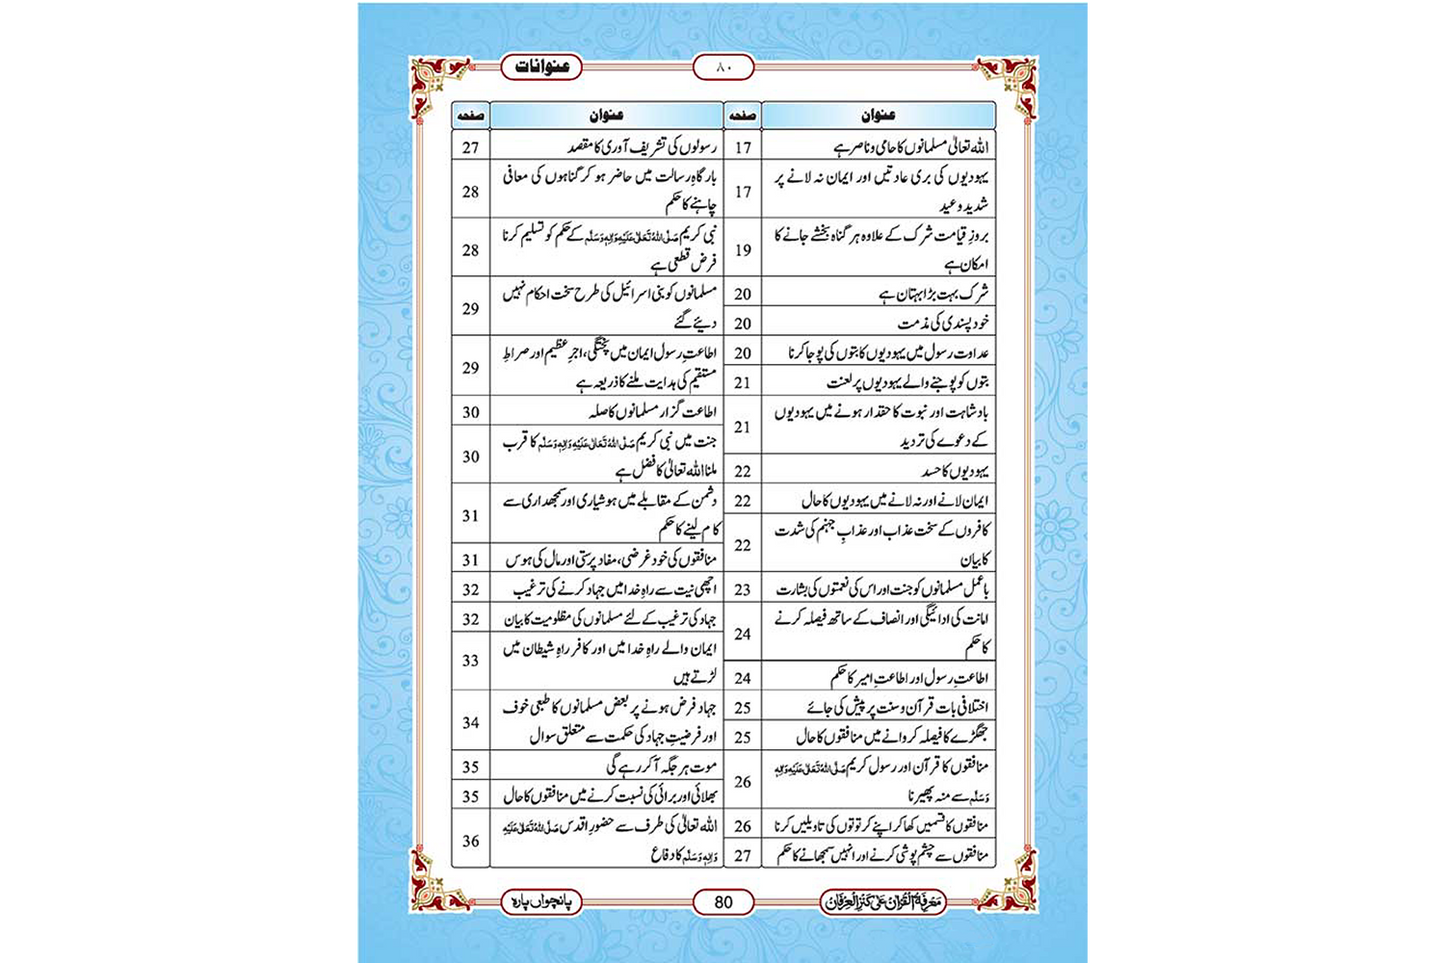 عنوانات
۸۰
عنوان
صفحہ
اللہ تعالیٰ مسلمانوں کا حامی و ناصر ہے
17
یہودیوں کی بری عادتیں اور ایمان نہ لانے پر
شدید وعید
17
بروزِ قیامت شرک کے علاوہ ہر گناہ بخشے جانے کا
امکان ہے
19
شرک بہت بڑا بہتان ہے
20
خود پسندی کی مذمت
20
عداوت رسول میں یہودیوں کا بتوں کی پوجا کرنا
20
بتوں کو پوجنے والے یہودیوں پر لعنت
21
بادشاہت اور نبوت کا حقدار ہونے میں یہودیوں
کے دعوے کی تردید
21
یہودیوں کا حسد
22
ایمان لانے اور نہ لانے میں یہودیوں کا حال
22
کافروں کے سخت عذاب اور عذابِ جہنم کی شدت
کا بیان
22
باعمل مسلمانوں کو جنت اور اس کی نعمتوں کی بشارت
23
امانت کی ادائیگی اور انصاف کے ساتھ فیصلہ کرنے
کا حکم
24
اطاعتِ رسول اور اطاعتِ امیر کا حکم
24
اختلافی بات قرآن و سنت پر پیش کی جائے
25
جھگڑے کا فیصلہ کروانے میں منافقوں کا حال
25
منافقوں کا قرآن اور رسول کریم صَلَّی اللہُ تَعَالٰی عَلَیْہِ وَاٰلِہٖ
وَسَلَّم سے منہ پھیرنا
26
منافقوں کا قسمیں کھا کر اپنے کرتوتوں کی تاویلیں کرنا
26
منافقوں سے چشم پوشی کرنے اور انہیں سمجھانے کا حکم
27
عنوان
صفحہ
رسولوں کی تشریف آوری کا مقصد
27
بارگاہِ رسالت میں حاضر ہو کر گناہوں کی معافی
چاہنے کا حکم
28
نبی کریم صَلَّی اللہُ تَعَالٰی عَلَیْہِ وَاٰلِہٖ وَسَلَّم کے حکم کو تسلیم کرنا
فرض قطعی ہے
28
مسلمانوں کو بنی اسرائیل کی طرح سخت احکام نہیں
دیئے گئے
29
اطاعتِ رسول ایمان میں پختگی، اجرِ عظیم اور صراطِ
مستقیم کی ہدایت ملنے کا ذریعہ ہے
29
اطاعت گزار مسلمانوں کا صلہ
30
جنت میں نبی کریم صَلَّی اللہُ تَعَالٰی عَلَیْہِ وَاٰلِہٖ وَسَلَّم کا قرب
ملنا اللہ تعالیٰ کا فضل ہے
30
دشمن کے مقابلے میں ہوشیاری اور سمجھداری سے
کام لینے کا حکم
31
منافقوں کی خود غرضی، مفاد پرستی اور مال کی ہوس
31
اچھی نیت سے راہِ خدا میں جہاد کرنے کی ترغیب
32
جہاد کی ترغیب کے لئے مسلمانوں کی مظلومیت کا بیان
32
ایمان والے راہِ خدا میں اور کافر راہِ شیطان میں
لڑتے ہیں
33
جہاد فرض ہونے پر بعض مسلمانوں کا طبعی خوف
اور فرضیتِ جہاد کی حکمت سے متعلق سوال
34
موت ہر جگہ آکر رہے گی
35
بھلائی اور برائی کی نسبت کرنے میں منافقوں کا حال
35
اللہ تعالیٰ کی طرف سے حضورِ اقدس صَلَّی اللہُ تَعَالٰی عَلَیْہِ
وَاٰلِہٖ وَسَلَّم کا دفاع
36
مَعْرِفَۃُ الْقُرْاٰن عَلٰی کَنْزُ الْعِرْفَان
80
پانچواں پارہ